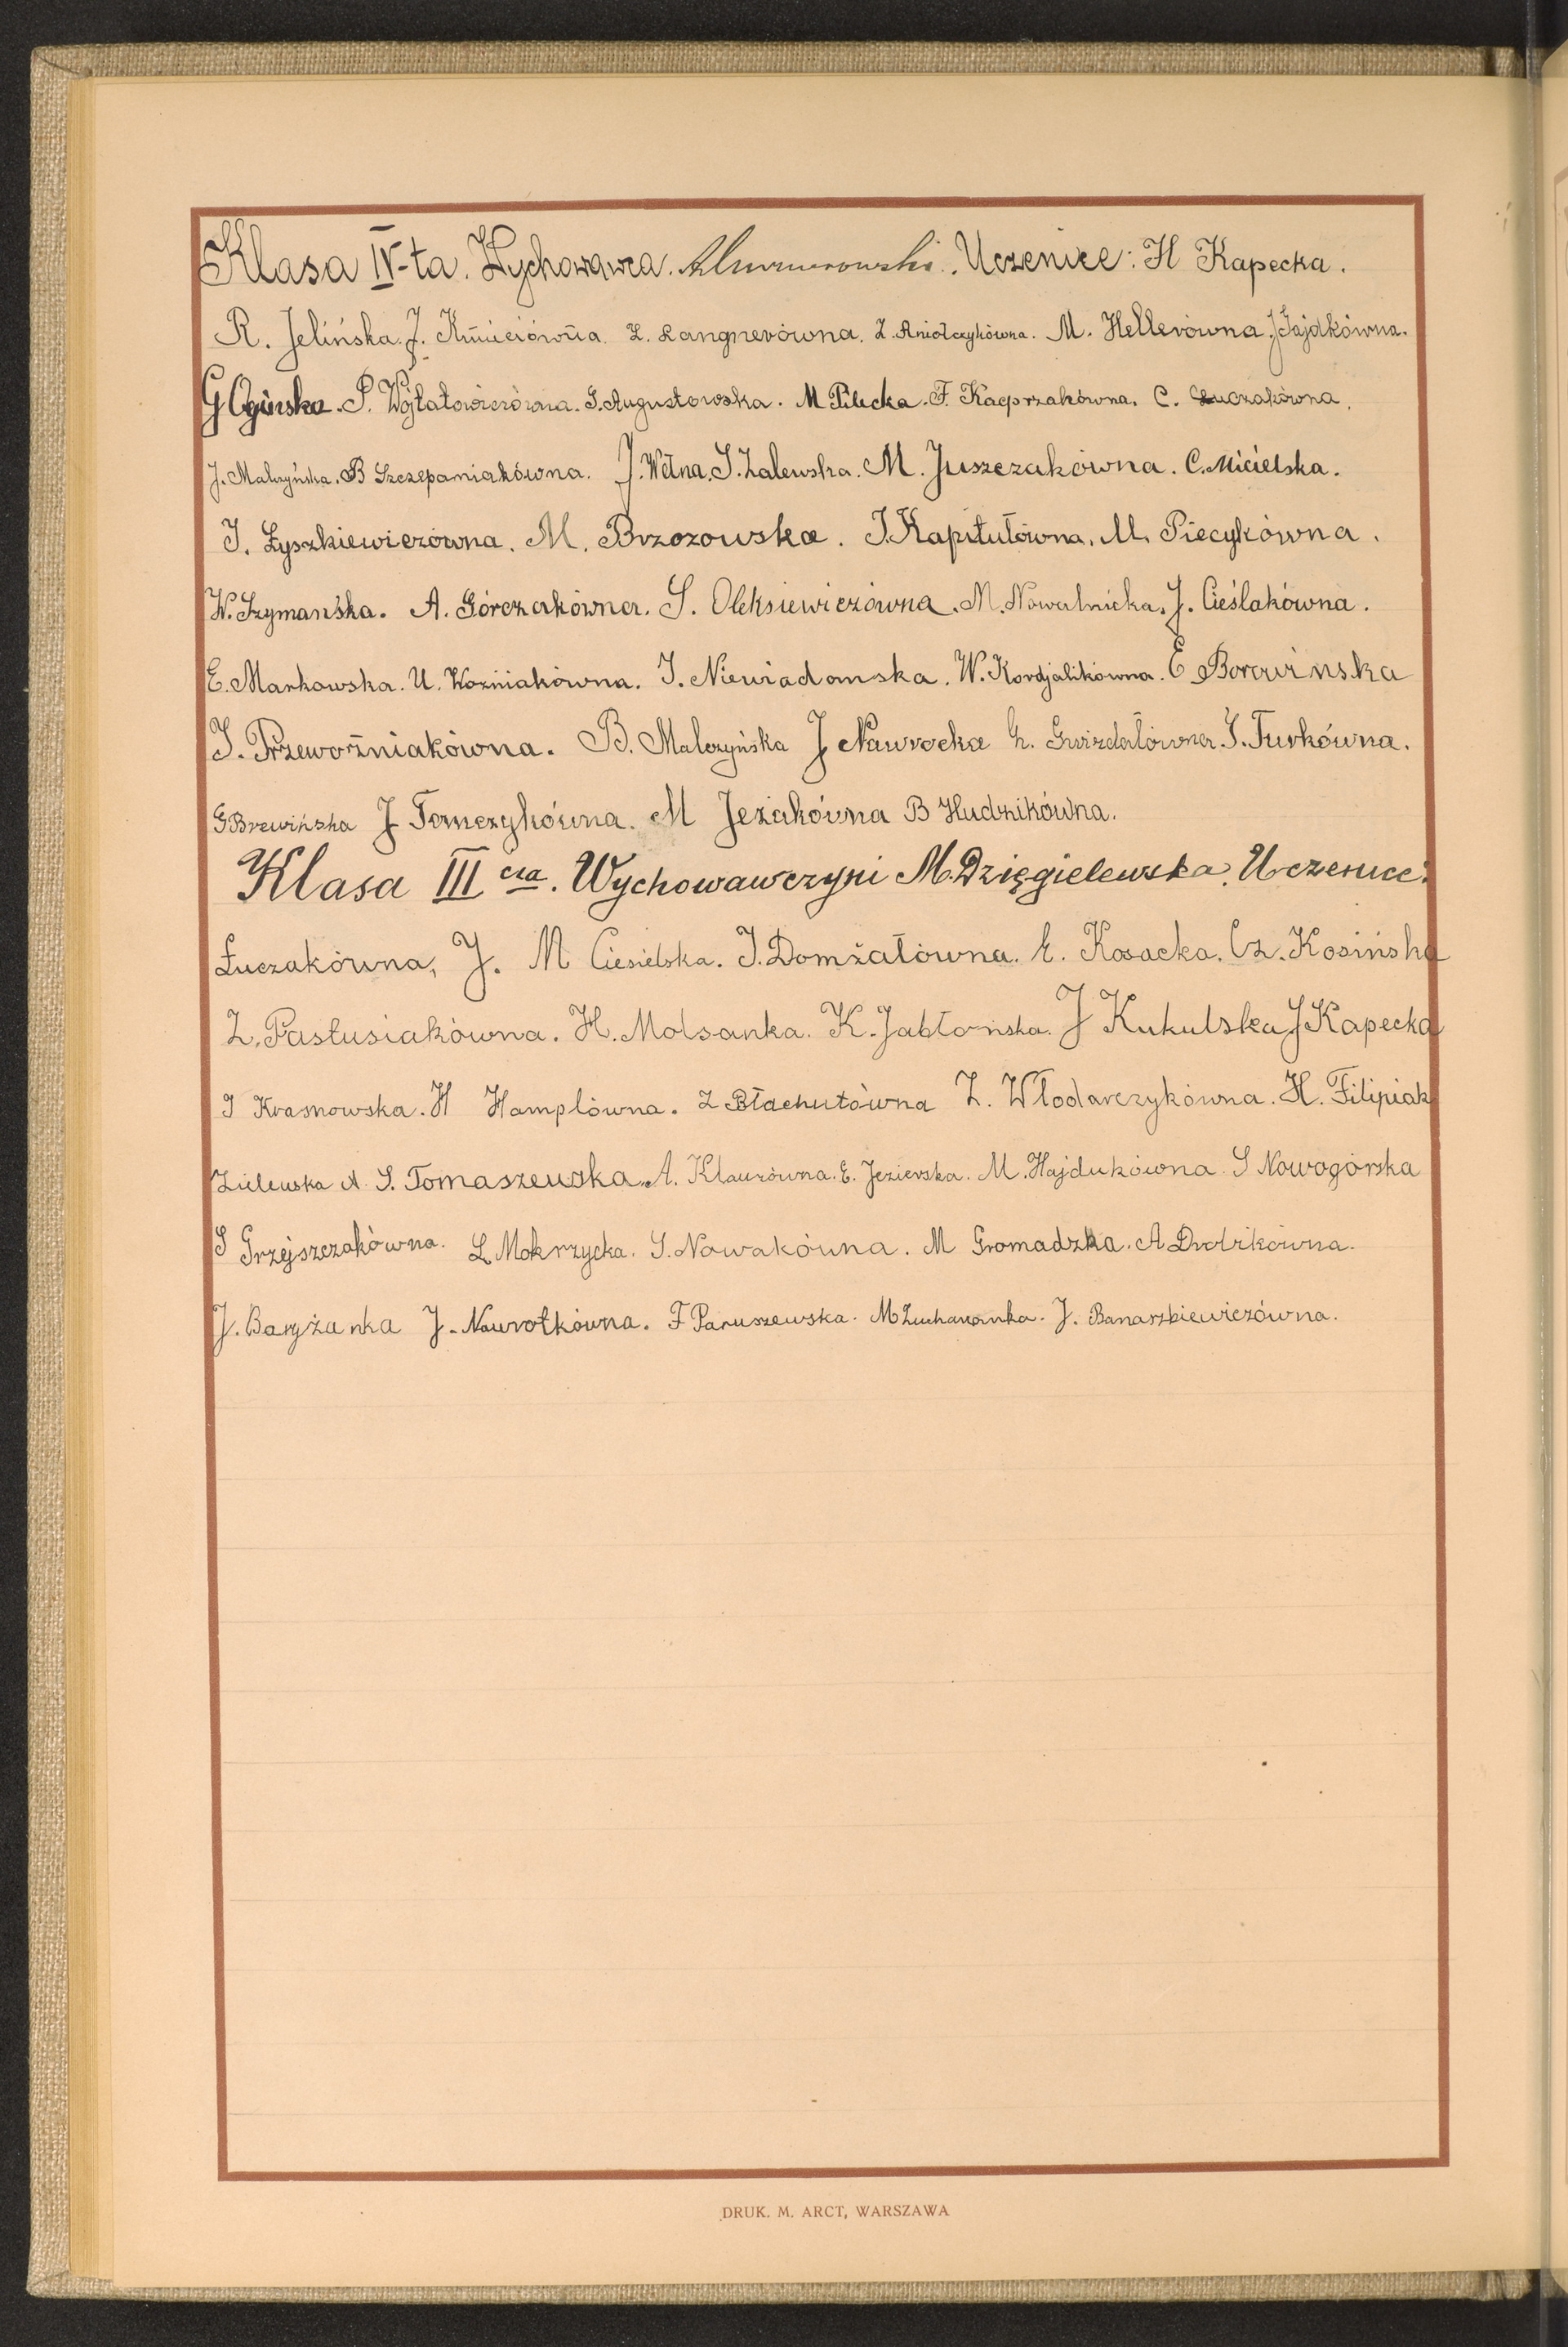 Klasa IV-ta. Wychowawca. Uczenice: H Kapecka.
R. Jelińska. J. Kmieciówna. Z. Langnerówna. Z. Aniołczykówna. M. Hellerówna. J Jajdkówna.
G Ogińska. P. Wójtałowiczówna. S. Augustowska. M Pilecka. F. Kacprzakówna. C. Łuczakówna.
J. Malczyńska. B Szczepaniakówna. J. Wełna. S. Zalewska. M. Juszczakówna. C. Micielska.
J. Łyszkiewiczówna. M. Brzozowska. J. Kapitułówna. M. Piecykówna.
W. Szymańska. A. Górczakówna. S. Oleksiewiczówna. M. Nowalnicka. J. Cieślakówna.
E. Markowska. U. Woźniakówna. J. Niewiadomska. W. Kordjalikówna. E Borowińska
J. Przewoźniakówna. B. Malczyńska J Nawrocka h. Gwizdałówna. S. Turkówna.
G Brewińska J Tomczykówna. M Jeżakówna B Hudzikówna.
Klasa III cia. Wychowawczyni M. Dzięgielewska. Uczenice:
Łuczakówna, J. M Ciesielska. J. Domżałówna. E. Kosacka. Cz. Kosińska
Z. Pastusiakówna. H. Molsanka. K. Jabłońska. J Kukulska J Kapecka
J Krasnowska. H Hamplówna. Z Błachutówna Z. Włodarczykówna. H. Filipiak
Zielewska A. S. Tomaszewska. A. Klaurówna. E. Jezierska. M. Hajdukówna. S Nowogórska
S Grzejszczakówna. L. Mokrzycka. S. Nowakówna. M Gromadzka. A
J. Baryżanka J. Nawrotkówna. F Paruszewska. M J. Banaszkiewiczówna.
DRUK. M. ARCT, WARSZAWA